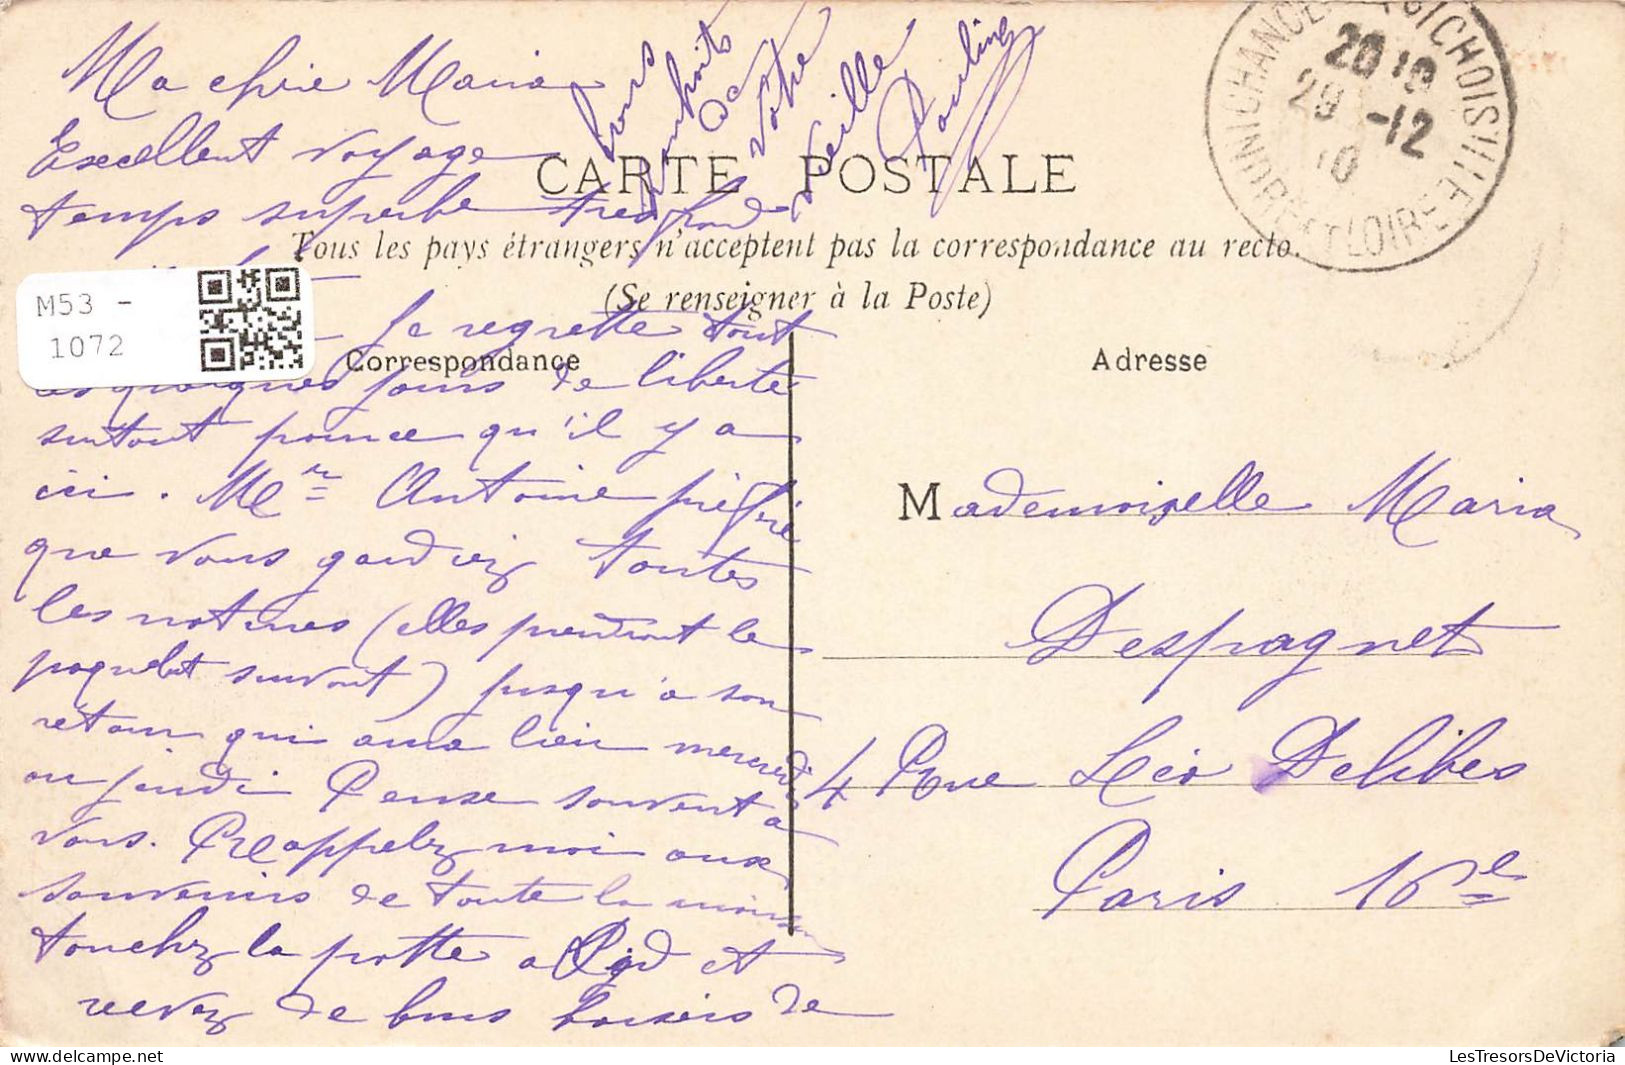 Ma chère Maria
Excellent voyage
temps superbe très froid
Je regrette tout
quelques jours de liberté
surtout qu'il y a
ici. Mme Antoine préfère
que vous gardiez toutes
les notines (elles prendront le
paquebot suivant) jusqu'à son
retour qui aura lieu mercredi
ou jeudi Pense souvent à
vous. Rappelez moi aux
souvenirs de toute la maison
touchez la patte a et
recevez de bons baisers de
Votre
vieille
Pauline
CARTE POSTALE
Tous les pays étrangers n'acceptent pas la correspondance au recto.
(Se renseigner à la Poste)
Correspondance
Adresse
Mademoiselle Maria
Despagnet
4 Rue Léo Delibes
Paris 16e
CHOISILLE
INDRE ET LOIRE
29 -12
10
M53 -
1072
LesTresorsDeVictoria